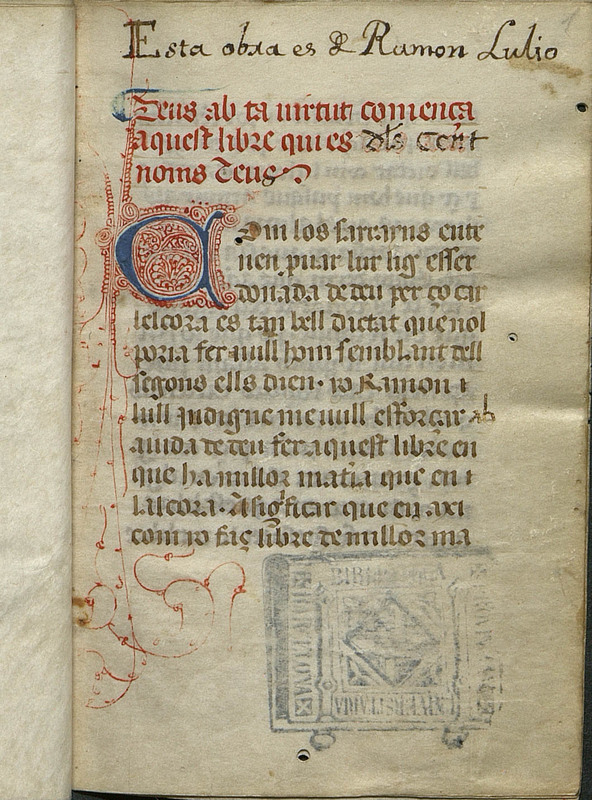 1
Esta obra es de Ramon Lulio
Deus ab ta uirtut comença
aquest libre qui es dels Cent
noms Deus
Com los sarrayns ente
nen puar lur lig esser
donada de deu per ço car
lelcora es tan bell dictat que nol
poria fer null hom semblant dell
segons ells dien· io Ramon
lull indigne me uull esforçar ab
aiuda de deu fer aquest libre en
que ha millor matia que en
lalcora· A sigficar que en axi
com io faç libre de millor ma
BIBLIOTECA
UNIVERSITARIA